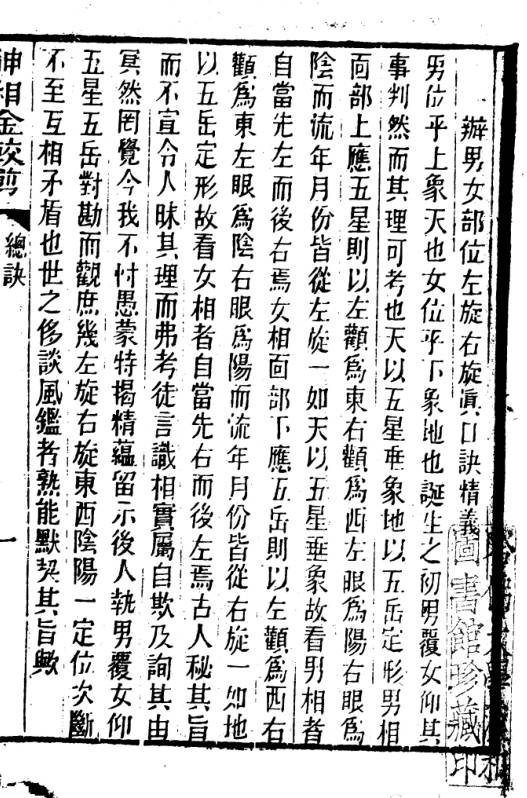 辦男女部位左旋右旋眞口訣精義
男位乎上象天也女位乎下象地也誕生之初男覆女仰其
事判然而其理可考也天以五星垂象地以五岳定形男相
面部上應五星則以左顴爲東右顴爲西左眼爲陽右眼爲
陰而流年月份皆從左旋一如天以五星垂象故看男相者
自當先左而後右焉女相面部下應五岳則以左顴爲西右
顴爲東左眼爲陰右眼爲陽而流年月份皆從右旋一如地
以五岳定形故看女相者自當先右而後左焉古人秘其旨
而不宣令人昧其理而弗考徒言識相實屬自欺及詢其由
冥然罔覺今我不忖愚蒙特揭精蘊留示後人執男覆女仰
五星五岳對勘而觀庶幾左旋右旋東西陰陽一定位次斷
不至互相矛盾也世之侈談風鑑者熟能默契其旨歟
神相金較剪
總訣
一
圖書館珍藏印